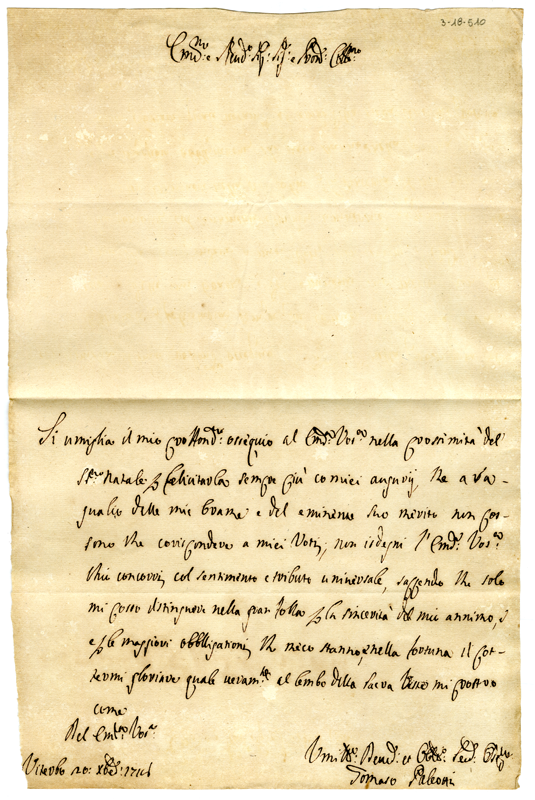 3-18-510
Em̃o: e Revd̃o: Sig: e Pron: Col:mo
Si umiglia il mio ossequio al Em̃: Vos:a nella prossimità del
S:mo Natale p felicitarla sempre più co miei augurij che a va-
guaglio delle mie brame e del eminente suo merito non pos-
sono che corrispondere a miei Voti, non isdegni l'Em̃: Vos:a
ch'io concorri col sentimento e tributo universale, sappendo che solo
mi posso distinguere nella gran folla p la sincerità del mio animo,
e p le maggiori obbligationi che meco stanno, e nella fortuna il pot-
termi gloriare quale veram:te al lembo della sacra Veste mi prostro
come
Del Em: Vos:a
Viterbo 20: Xbr̃e: 174
Umi:mo Devd: et Obb: Serd:
Tomaso Faleoni